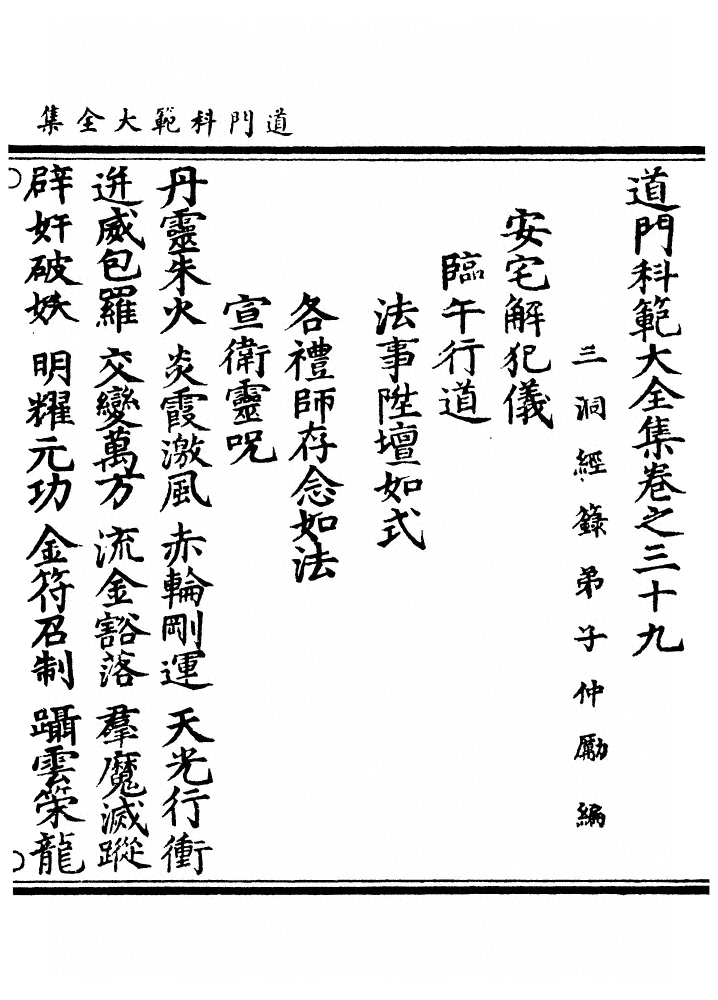 道門科範大全集
道門科範大全集卷之三十九
三洞經籙弟子仲勵編
安宅解犯儀
臨午行道
法事陞壇如式
各禮師存念如法
宣衛靈呪
丹靈朱火 炎霞激風 赤輪剛運 天光行衝
迸威包羅 交變萬方 流金豁落 羣魔滅蹤
辟奸破妖 明耀元功 金符召制 躡雲策龍